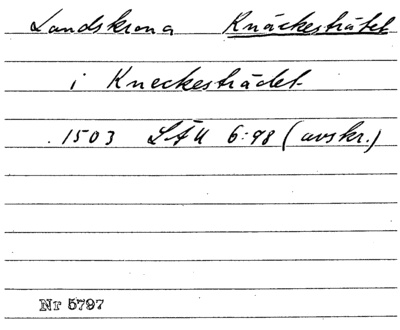 Landskrona Knäckesträtet
i Kneckesträdet
1503 LÄU 6:98 (avskr.)
Nr 5797